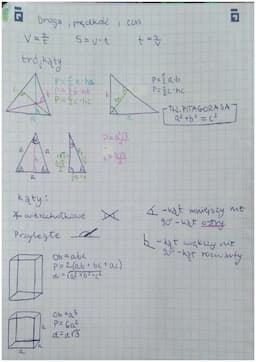 Droga, prędkość, czas
V = s/t   S = v·t   t = s/v
trójkąty
P = ½ a·ha
P = ½ b·hb
P = ½ c·hc
P = ½ ab
P = ½ c·hc
TW. PITAGORASA
a² + b² = c²
Kąty:
wierzchołkowe
Przyległe
- kąt mniejszy niż
90° - kąt ostry
- kąt większy niż
90° - kąt rozwarty
Ob = abc
P = 2(ab + bc + ac)
d = √a² + b² + c²
Ob = a³
P = 6a²
d = a√3